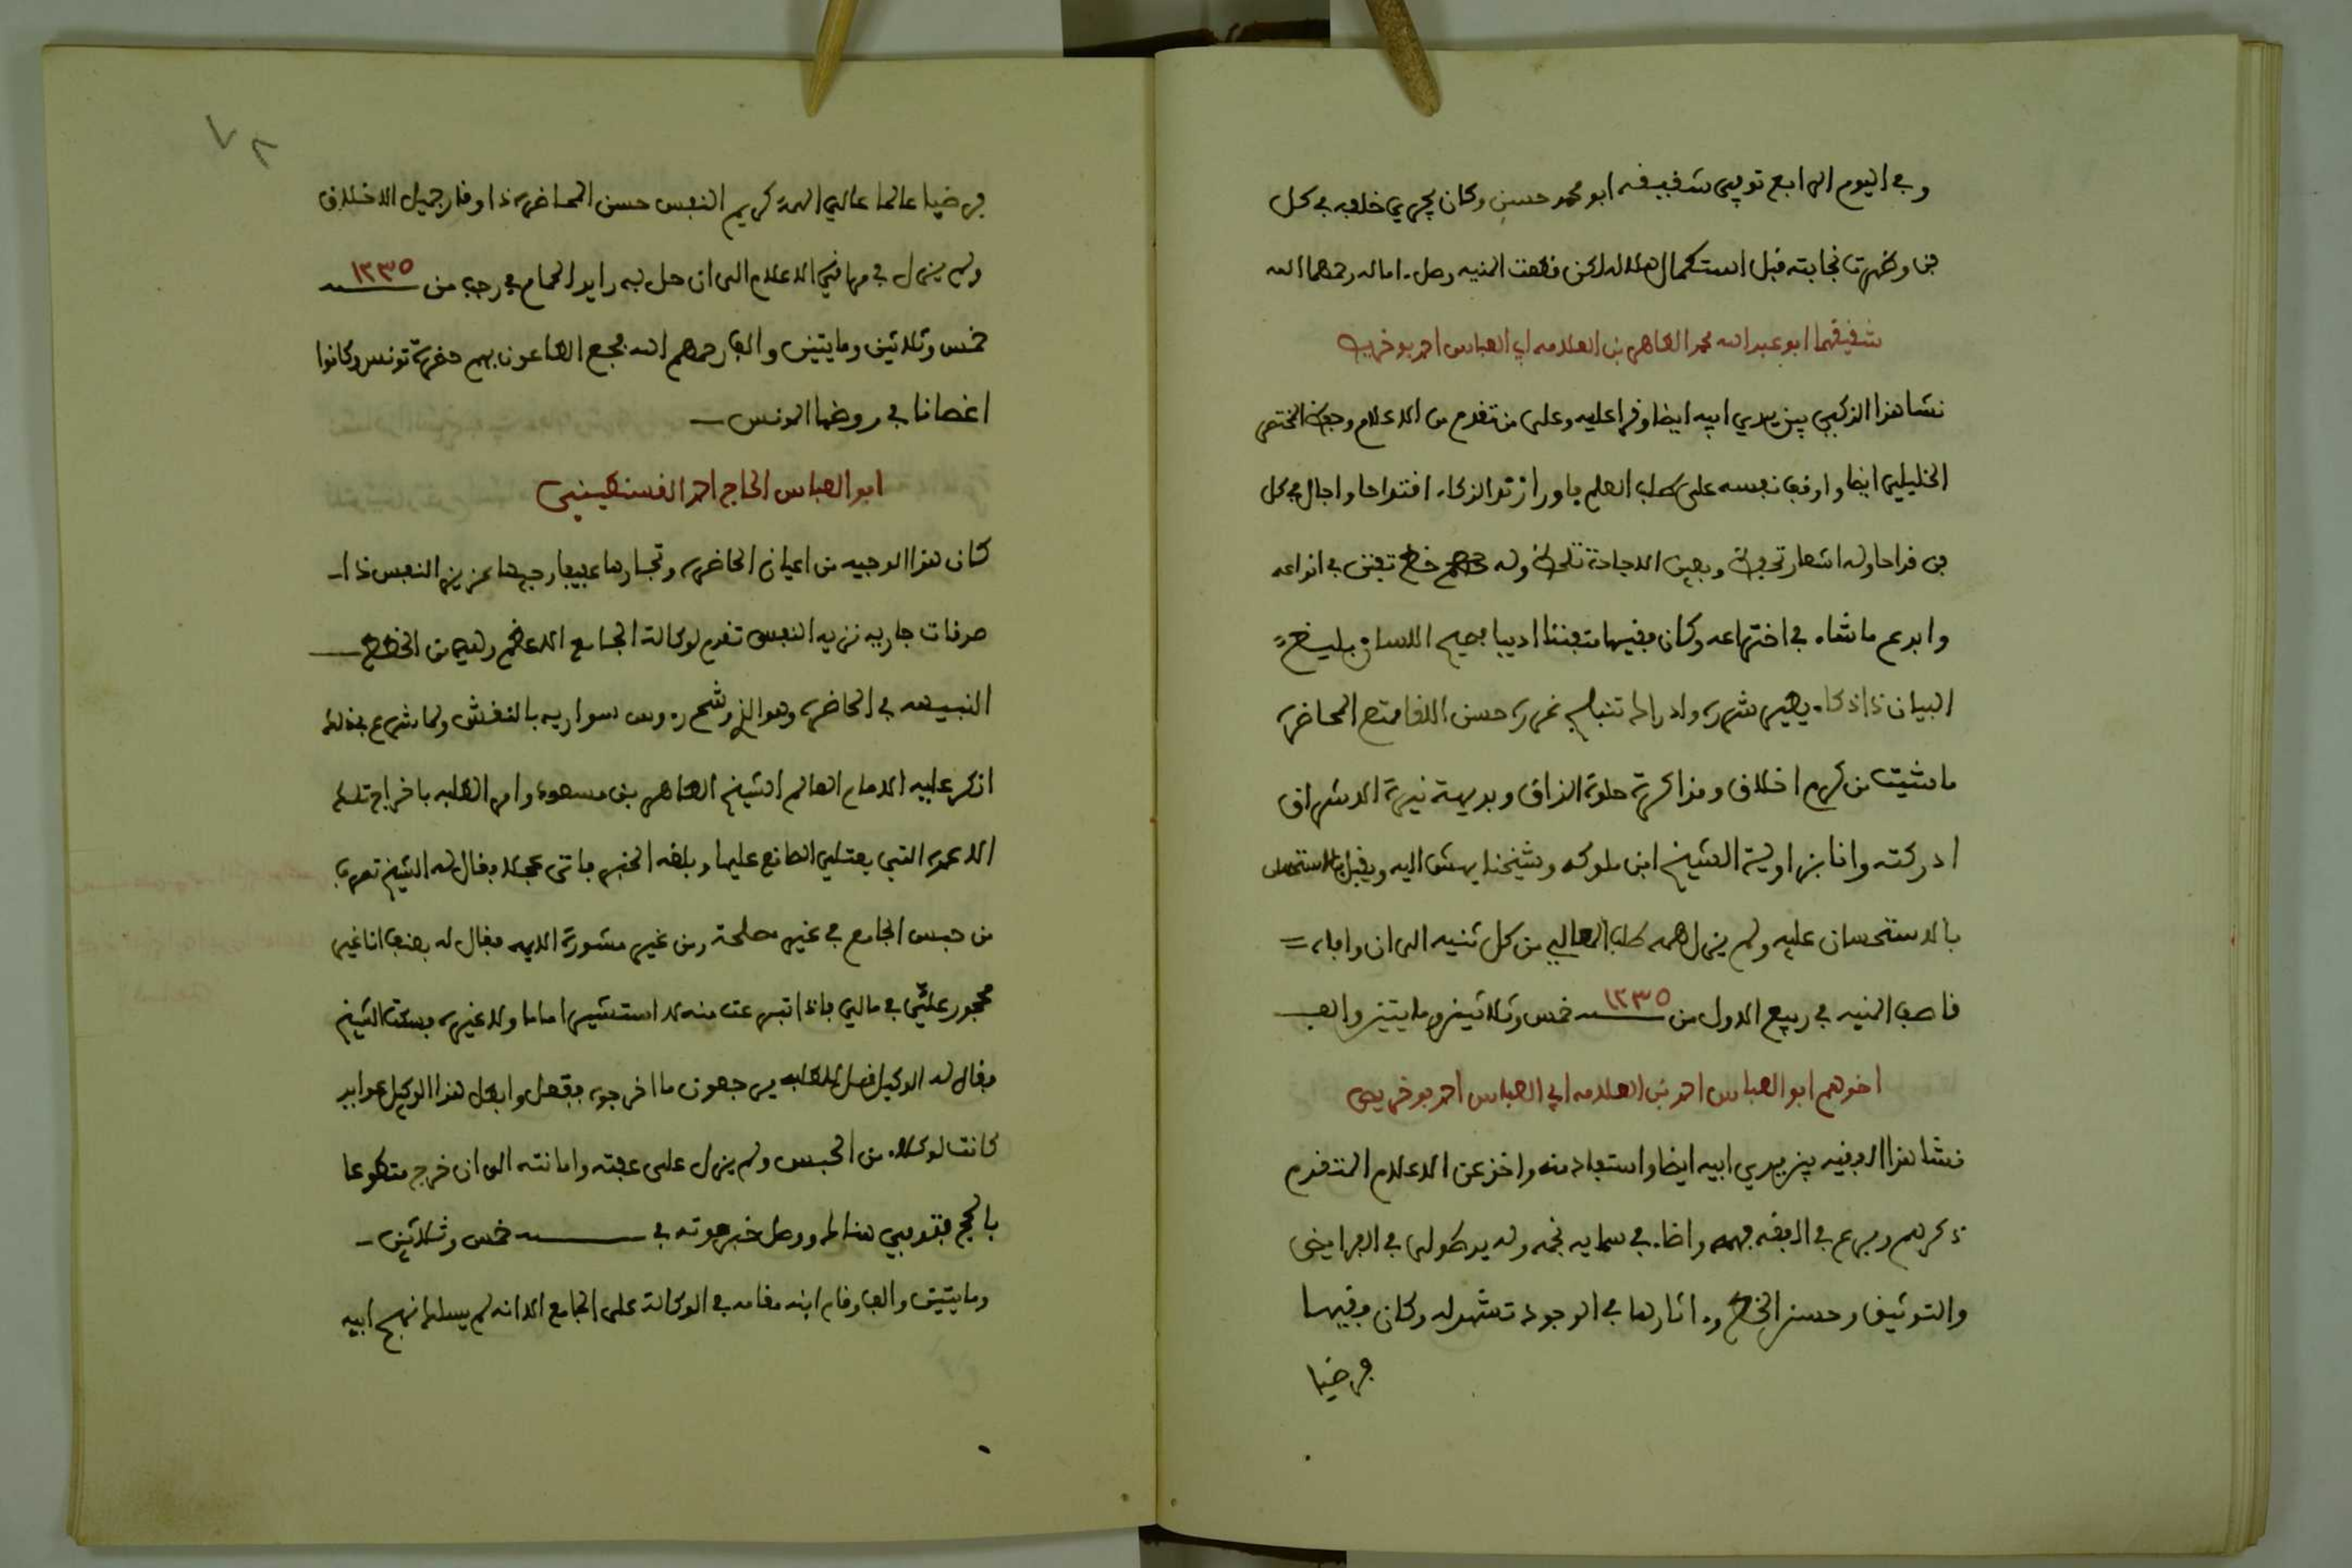 وفي اليوم الرابع توفي شقيقه ابو محمد حسن وكان يجري خلفه في كل
فن وظهرت نجابته قبل استكمال هلاله لكن قطعت المنيه وصل اماله رحمهما الله
شقيقهما ابو عبد الله محمد الطاهر بن العلامه ابي العباس احمد بو خريص
نشا هذا الذكي بين يدي ابيه ايضا وقرا عليه وعلى من تقدم من الاعلام وحفظ المختصر
الخليلي ايضا واوقف نفسه على طلب العلم فاورا زند الذكاء اقتداحا واجال في كل
فن قداحا وله اشعار تحفظ وبعين الاجادة تلحظ وله خط تفنن في انواعه
وابدع ما شاء في اختراعه وكان فقيها متفننا اديبا فصيح اللسان بليغ
البيان ذا ذكاء يطير شرره وادراك تنبلج غرره حسن اللقا ممتع المحاضره
ما شيت من كرم اخلاق ومذاكرة حلوة المذاق وبديهة نيرة الاشراق
ادركته وانا بزاوية الشيخ ابن ملوكه وشيخنا يهش اليه ويقبل
بالاستحسان عليه ولم يزل همه طلب المعالي من كل ثنيه الى ان وافاه
قاصف المنيه في ربيع الاول من سنه ١٢٣٥ خمس وثلاثين ومايتين والف
اخوهم ابو العباس احمد بن العلامه ابي العباس احمد بو خريص
نشا هذا الفقيه بين يدي ابيه ايضا واستفاد منه واخذ عن الاعلام المتقدم
ذكرهم وبرع في الفقه فهمه واضاء في سمايه نجمه وله يد طولى في الفرايض
والتوثيق وحسن الخط واثارها في الوجود تشهد له وكان فقيها
فرضيا
٧٢
فرضيا عالما عالي الهمة كريم النفس حسن المحاضره ذا وقار جميل الاخلاق
ولم يزل في مراقي الاعلام الى ان حل به رايد الحمام في رجب من سنه ١٢٣٥
خمس وثلاثين ومايتين والف رحمهم الله فجع الطاعون بهم حضرة تونس وكانوا
اغصانا في روضها المونس
ابو العباس الحاج احمد القسنطيني
كان هذا الوجيه من اعيان الحاضره وتجارها عفيفا وجيها عزيز النفس ذا
صدقات جاريه نزيه النفس تقدم لوكالة الجامع الاعظم وهي من الخطط
النبيهه في الحاضره وهو الذي رشح روس سواريه بالنقش ولما شرع في ذلك
انكر عليه الامام العالم الشيخ الطاهر بن مسعود وامر الطلبه باخراج تلك
الاعمدة التي يعتلي الصانع عليها وبلغه الخبر فاتى عجلا فقال له الشيخ تصرف
من حبس الجامع في غير مصلحة ومن غير مشورة الايمه فقال له بعنف انا غير
محجور عليّ في مالي فاذا تبرعت منه لا استشير اماما ولا غيره فسكت الشيخ
فقال له الوكيل قل للطلبه يرجعون ما اخرجوه ففعل وابطل هذا الوكيل عوايد
كانت لوكلاء من الحبس ولم يزل على عفته وامانته الى ان خرج متطوعا
بالحج فتوفي هنالك ووصل خبر موته في سنه خمس وثلاثين
ومايتين والف وقام ابنه مقامه في الوكالة على الجامع الا انه لم يسلك نهج ابيه